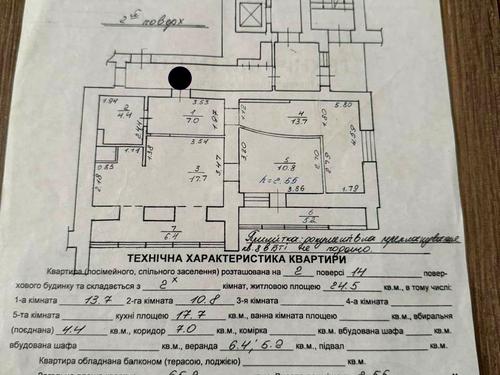 2ий поверх
3.53
5.80
1.94
2
4.4
1
7.0
1.97
1.12
4
13.7
1.80
4.59
2.46
3.54
1.14
1.38
0.85
3
17.7
3.47
3.20
5
10.8
2.70
2.76
h=2.55
2.18
3.36
1.79
7
6.4
6
5.2
Примітка: документи на
не подано.
ТЕХНІЧНА ХАРАКТЕРИСТИКА КВАРТИРИ
Квартира (посімейного, спільного заселення) розташована на 2 поверсі 14 повер-
хового будинку та складається з 2х кімнат, житловою площею 24.5 кв.м., в тому числі:
1-а кімната 13.7 2-га кімната 10.8 кв.м., 3-я кімната кв.м., 4-а кімната
5-та кімната кв.м., кухні площею 17.7 кв.м., ванна кімната площею кв.м., вбиральня
(поєднана) 4.4 кв.м., коридор 7.0 кв.м., комірка кв.м., вбудована шафа кв.м.,
вбудована шафа кв.м., веранда 6.4; 5.2 кв.м., підвал кв.м.
Квартира обладнана балконом (терасою, лоджією) кв.м.